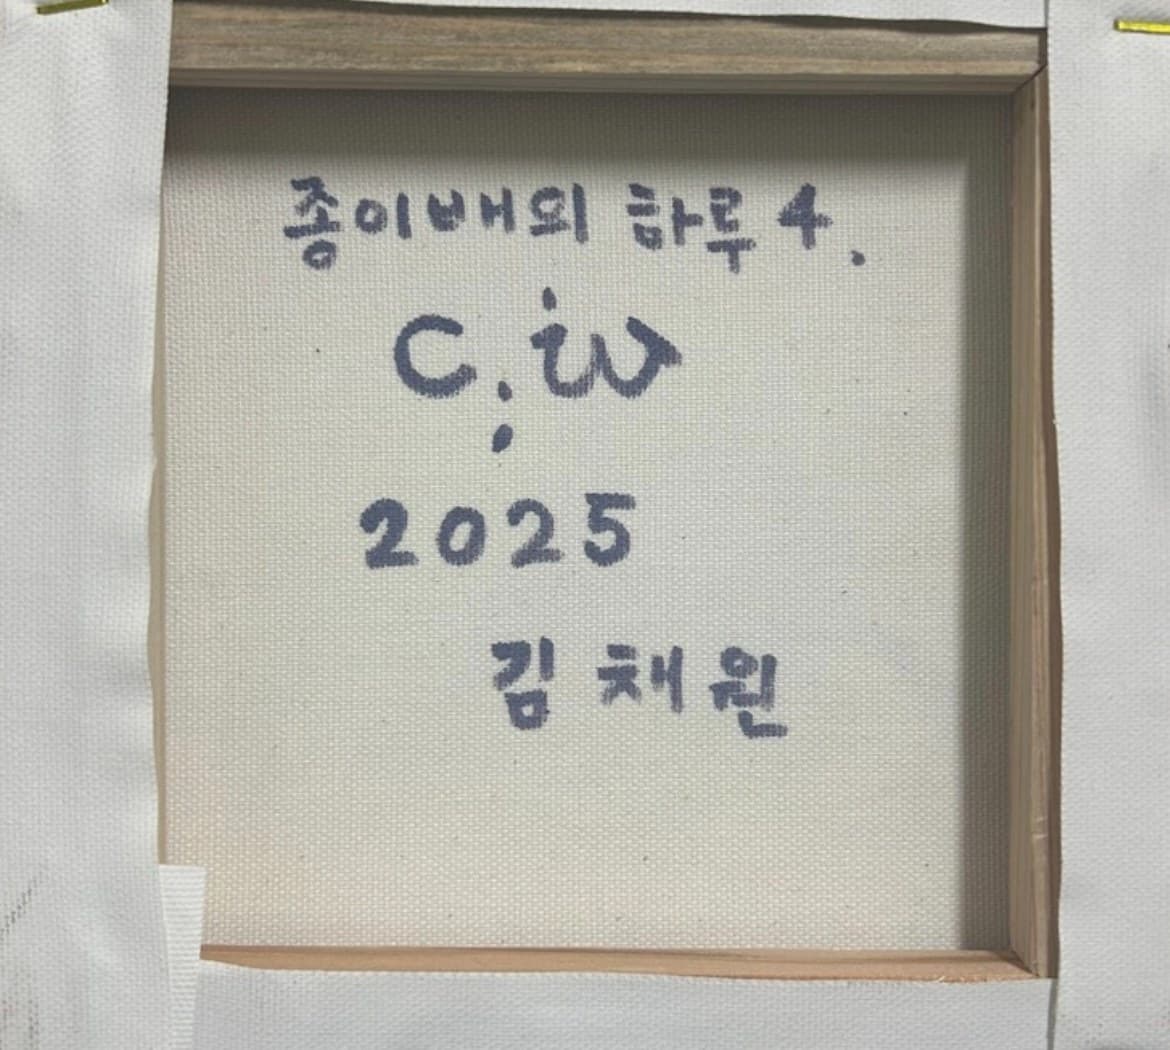 종이배의 하루 4.
C;iw
2025
김채원